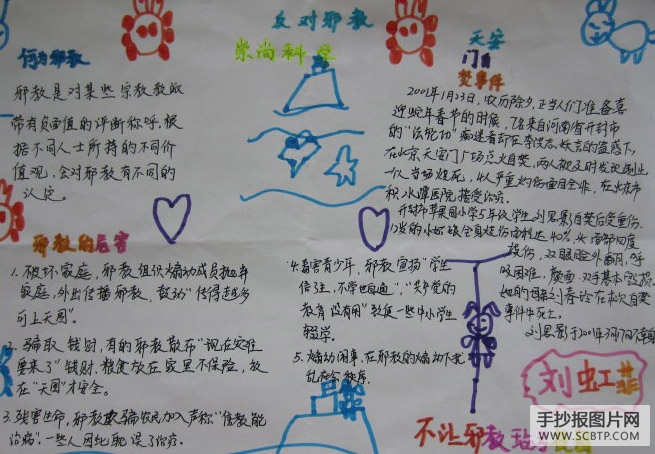 反对邪教
崇尚科学
何为邪教
邪教是对某些宗教教派
带有负面值的评断称呼.根
据不同人士所持的不同价
值观,会对邪教有不同的
认定。
邪教的危害
1.破坏家庭,邪教组织煽动成员抛弃
家庭,外出传播邪教、鼓动"传得越多
可上天国"。
2.骗取钱财,有的邪教散布"现在灾难
要来了"钱财.粮食放在家里不保险,放
在"天国"才安全。
3.残害生命,邪教欺骗农民加入声称"信教能
治病",一些人因此耽误了治疗。
4.毒害青少年,邪教宣扬"学生
信主,不学也会通","共产党的
教育没有用"致使一些中小学生
辍学。
5.煽动闹事,在邪教的煽动下扰
乱社会秩序。
天安
门自
焚事件
2001年1月23日,农历除夕,正当人们准备喜
迎蛇年春节的时候,7名来自河南省开封市
的"法轮功"痴迷者却在李洪志妖言的蛊惑下,
在北京天安门广场点火自焚,两人被及时发现制止
一人当场烧死,4人严重灼伤面目全非,在北京市
积水潭医院接受治疗。
开封市苹果园小学5年级学生刘思影自焚后受重伤.
12岁的小姑娘全身烧伤面积达40%,头面部四度
烧伤,双眼睑外翻,呼
吸困难,颜面、双手基本毁损.
她的母亲刘春玲在本次自焚
事件中死亡。
刘虹菲
不让邪教
手抄报图片网
WWW.SCBTP.COM